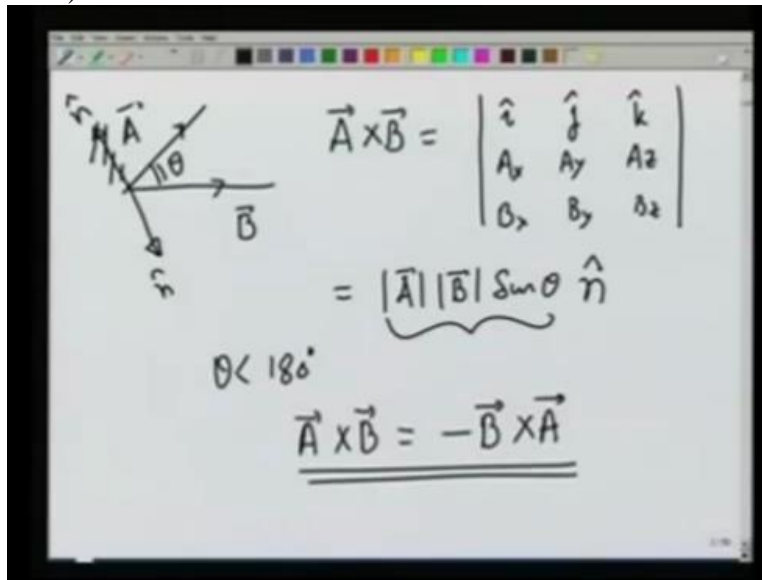 n̂
A⃗
θ
B⃗
n̂
A⃗ × B⃗ = | î ĵ k̂ |
| Ax Ay Az |
| Bx By Bz |
= |A⃗| |B⃗| Sin θ n̂
θ < 180°
A⃗ × B⃗ = − B⃗ × A⃗